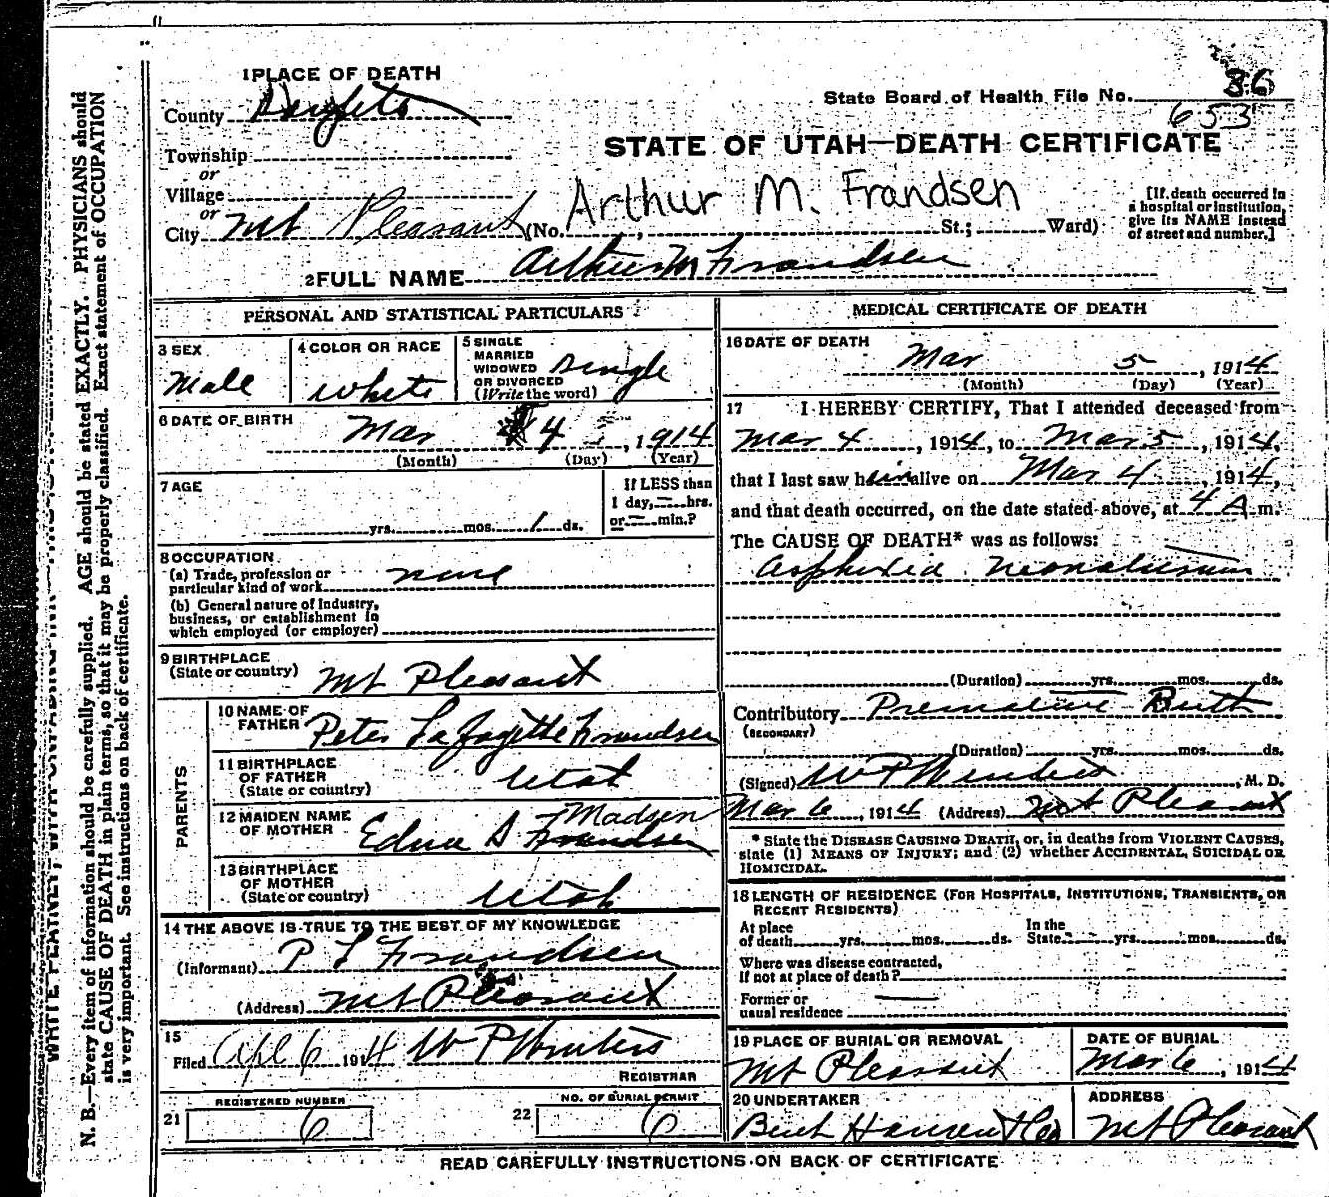 1 PLACE OF DEATH
County
State Board of Health File No. 36
653
STATE OF UTAH—DEATH CERTIFICATE
Township
or
Village
or
City Mt Pleasant (No. , St.; Ward)
Arthur M. Frandsen
[If death occurred in
a hospital or institution,
give its NAME instead
of street and number.]
2 FULL NAME Arthur M Frandsen
PERSONAL AND STATISTICAL PARTICULARS
3 SEX
Male
4 COLOR OR RACE
White
5 SINGLE
MARRIED
WIDOWED
OR DIVORCED
(Write the word)
Single
6 DATE OF BIRTH
Mar 4, 1914
(Month) (Day) (Year)
7 AGE
yrs. mos. 1 ds.
If LESS than
1 day,— hrs.
or — min.?
8 OCCUPATION
(a) Trade, profession or
particular kind of work none
(b) General nature of Industry,
business, or establishment in
which employed (or employer)
9 BIRTHPLACE
(State or country) Mt Pleasant
PARENTS
10 NAME OF
FATHER Peter Lafayette Frandsen
11 BIRTHPLACE
OF FATHER
(State or country) Utah
12 MAIDEN NAME
OF MOTHER Edna S Frandsen
Madsen
13 BIRTHPLACE
OF MOTHER
(State or country) Utah
14 THE ABOVE IS TRUE TO THE BEST OF MY KNOWLEDGE
(Informant) P L Frandsen
(Address) Mt Pleasant
15
Filed Apl 6 1914 W P Winters
REGISTRAR
21 REGISTERED NUMBER
6
22 NO. OF BURIAL PERMIT
6
MEDICAL CERTIFICATE OF DEATH
16 DATE OF DEATH
Mar 5, 1914
(Month) (Day) (Year)
17 I HEREBY CERTIFY, That I attended deceased from
Mar 4, 1914, to Mar 5, 1914,
that I last saw him alive on Mar 4, 1914,
and that death occurred, on the date stated above, at 4 A m.
The CAUSE OF DEATH* was as follows:
Asphixia Neonatorum
(Duration) yrs. mos. ds.
Contributory Premature Birth
(SECONDARY)
(Duration) yrs. mos. ds.
(Signed) W P Winters, M. D.
Mar 6, 1914 (Address) Mt Pleasant
* State the DISEASE CAUSING DEATH, or, in deaths from VIOLENT CAUSES,
state (1) MEANS OF INJURY; and (2) whether ACCIDENTAL, SUICIDAL OR
HOMICIDAL.
18 LENGTH OF RESIDENCE (FOR HOSPITALS, INSTITUTIONS, TRANSIENTS, OR
RECENT RESIDENTS)
At place
of death yrs. mos. ds.
In the
State yrs. mos. ds.
Where was disease contracted,
If not at place of death?
Former or
usual residence
19 PLACE OF BURIAL OR REMOVAL
Mt Pleasant
DATE OF BURIAL
Mar 6, 1914
20 UNDERTAKER
Bent Hansen & Co
ADDRESS
Mt Pleasant
READ CAREFULLY INSTRUCTIONS ON BACK OF CERTIFICATE
N. B.—Every item of information should be carefully supplied. AGE should be stated EXACTLY. PHYSICIANS should
state CAUSE OF DEATH in plain terms, so that it may be properly classified. Exact statement of OCCUPATION
is very important. See instructions on back of certificate.